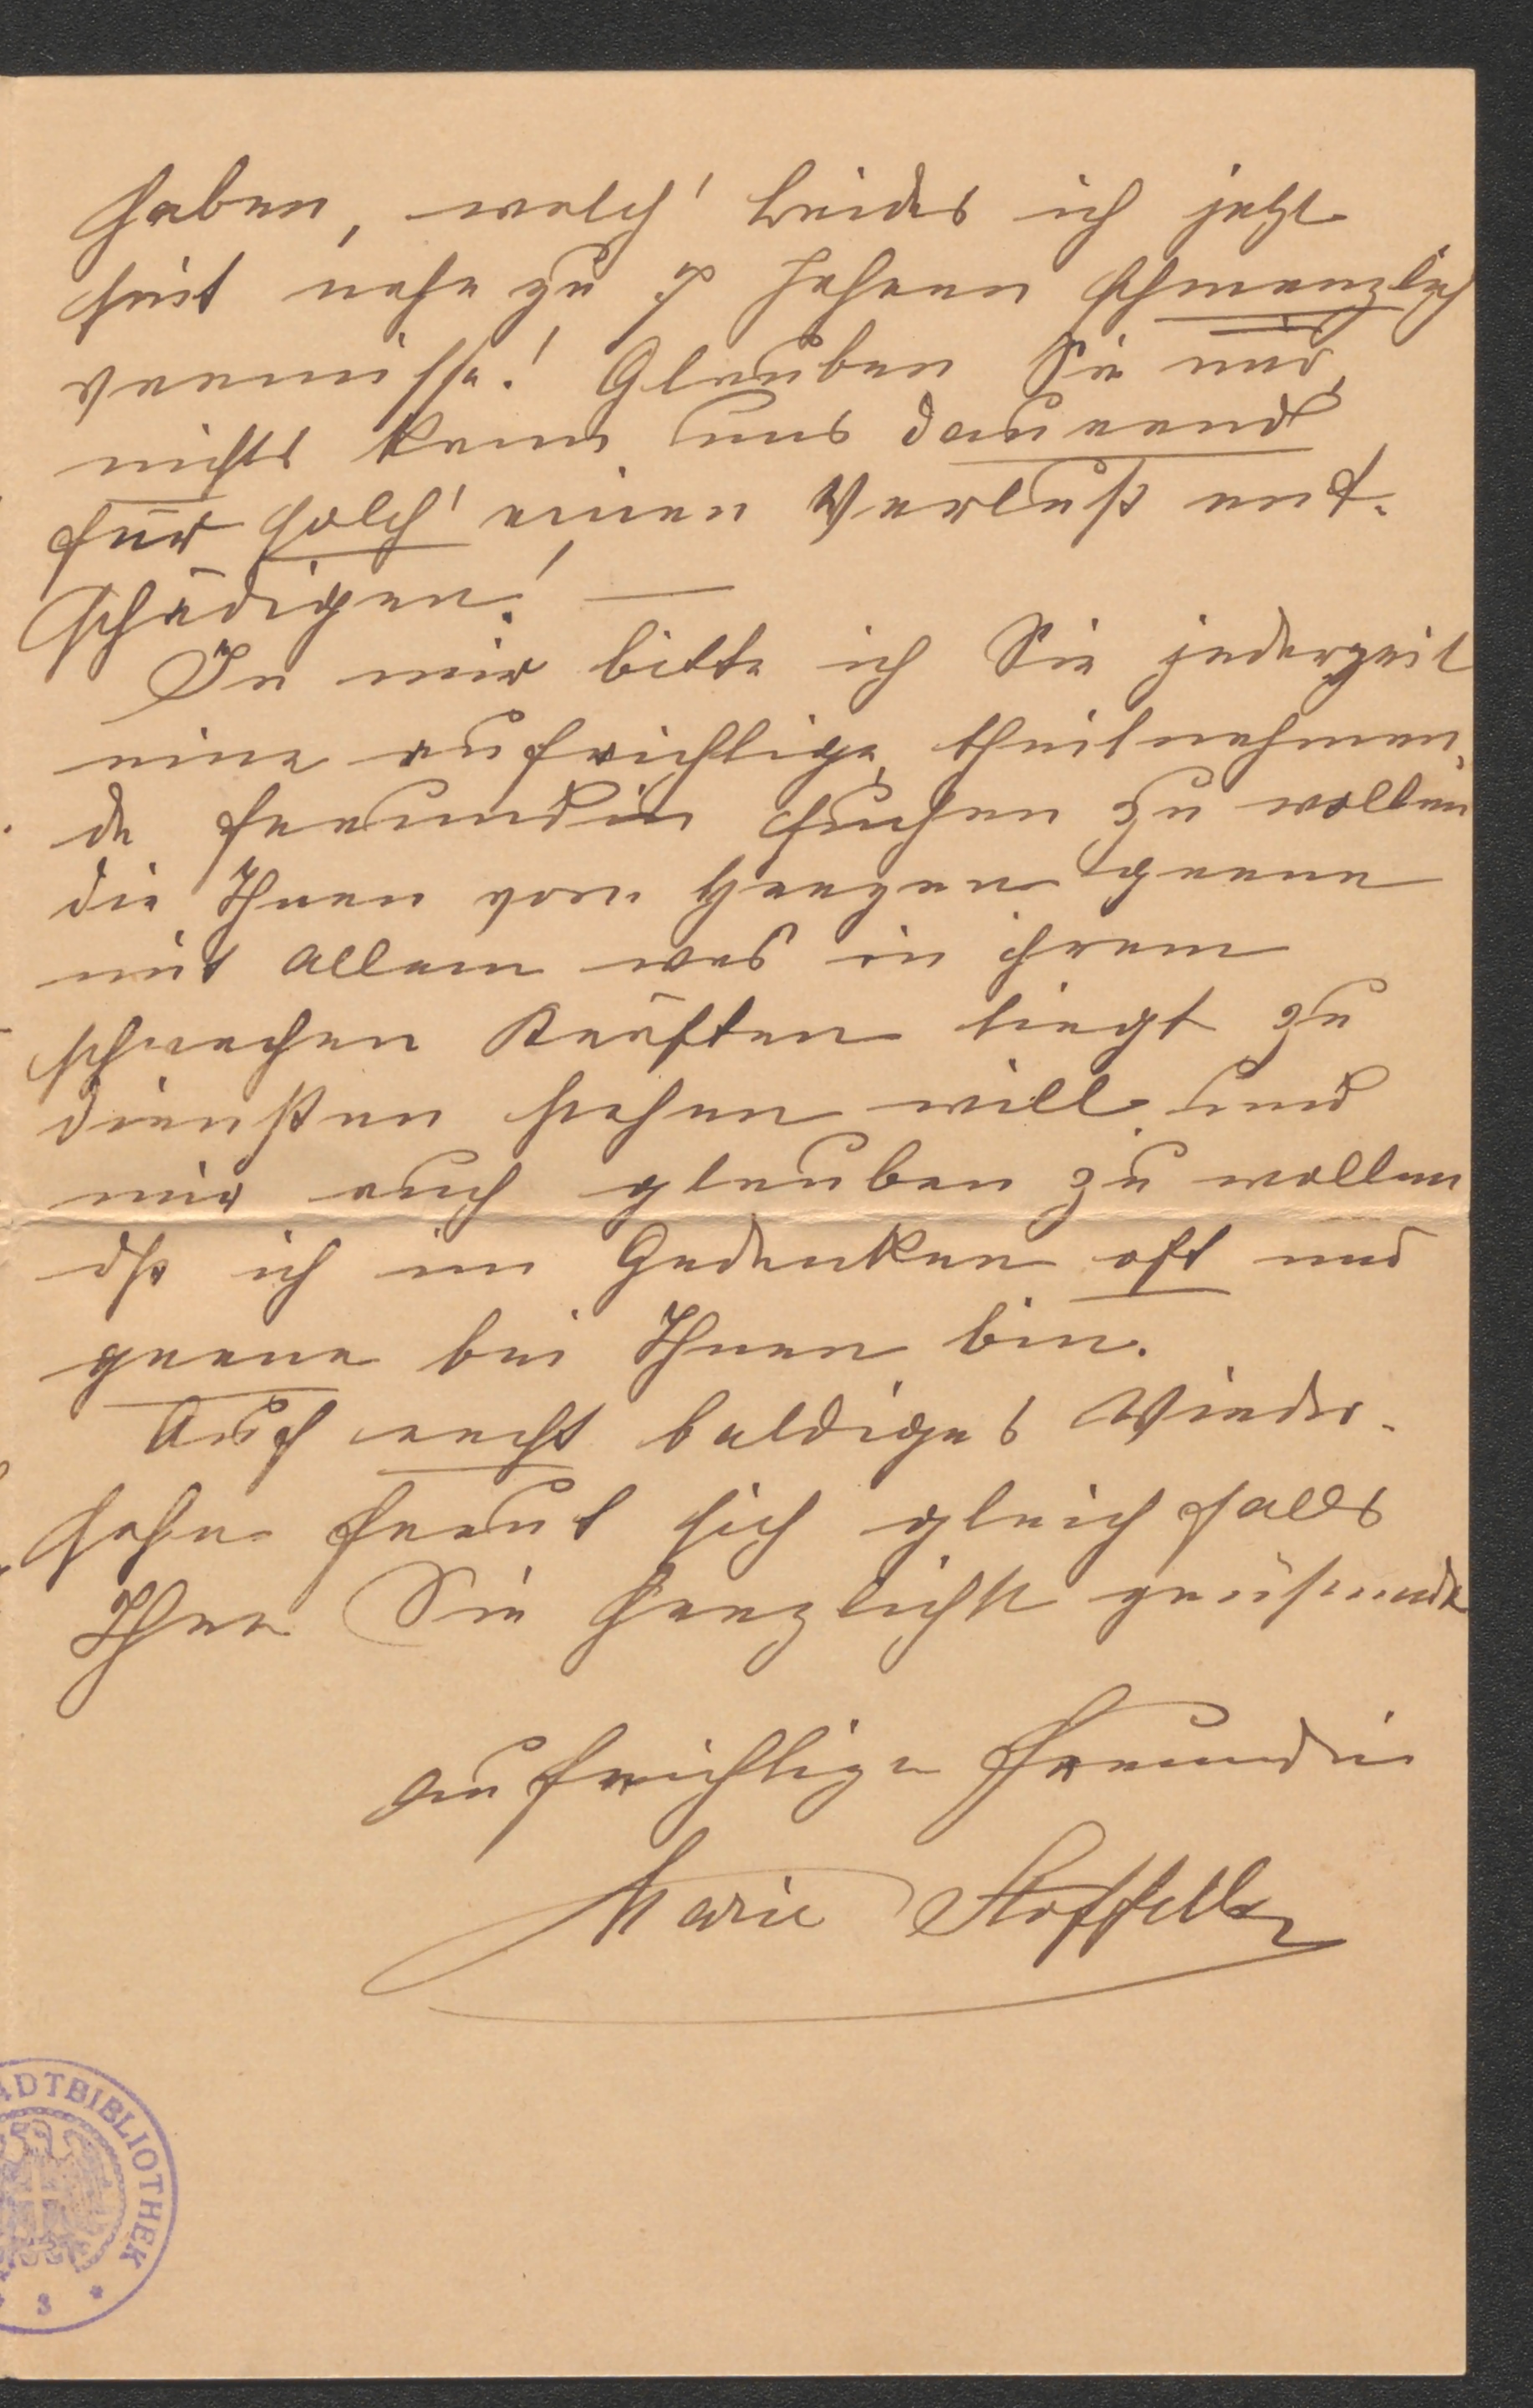 haben, welch' beides ich jetzt
seit nahe zu 7 Jahren schmerzlich
vermisse! Glauben Sie mir,
nichts kann uns dauernd
für solch' einen Verlust ent-
schädigen! —
In mir bitte ich Sie jederzeit
eine aufrichtige, theilnehmen-
de Freundin suchen zu wollen
die Ihnen vom Herzen gerne
mit allem was in ihrem
schwachen Kräften liegt zu
diensten stehen will und
mir auch glauben zu wollen
dß ich im Gedenken oft und
gerne bei Ihnen bin.
Auf recht baldiges Wieder-
sehn freut sich gleichfalls
Ihre Sie herzlichst grüßende
aufrichtige Freundin
Marie Stoffella
ADTBIBLIOTHEK
* 3 *